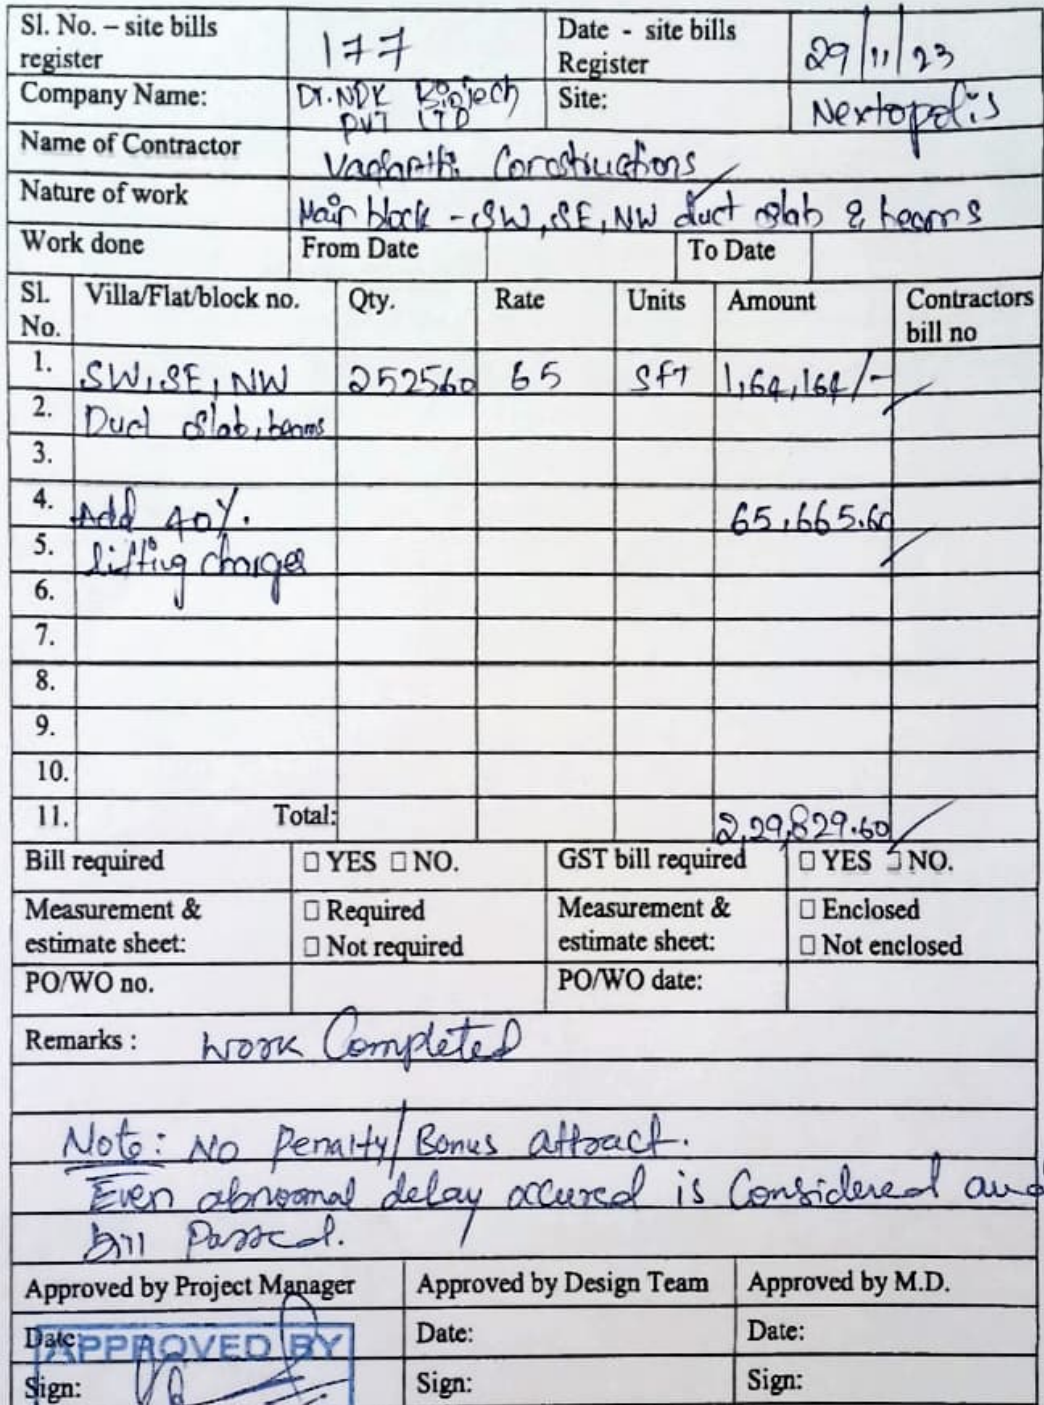 Sl. No. – site bills register 177 Date - site bills Register 29/11/23
Company Name: Dr.NDK Biotech PVT LTD Site: Nextopolis
Name of Contractor Constructions
Nature of work Main block - SW, SE, NW duct slab & beams
Work done From Date To Date
Sl. No. Villa/Flat/block no. Qty. Rate Units Amount Contractors bill no
1. SW, SE, NW 252560 65 Sft 1,64,164/-
2. Duct slab, beams
3.
4. Add 40%. 65,665.60
5. lifting charges
6.
7.
8.
9.
10.
11. Total: 2,29,829.60
Bill required □ YES □ NO. GST bill required □ YES □ NO.
Measurement & estimate sheet: □ Required □ Not required Measurement & estimate sheet: □ Enclosed □ Not enclosed
PO/WO no. PO/WO date:
Remarks : work Completed
Note: No Penalty/Bonus attract.
Even abnormal delay occured is Considered and
bill Passed.
Approved by Project Manager Approved by Design Team Approved by M.D.
Date: Date: Date:
APPROVED BY
Sign: Sign: Sign: